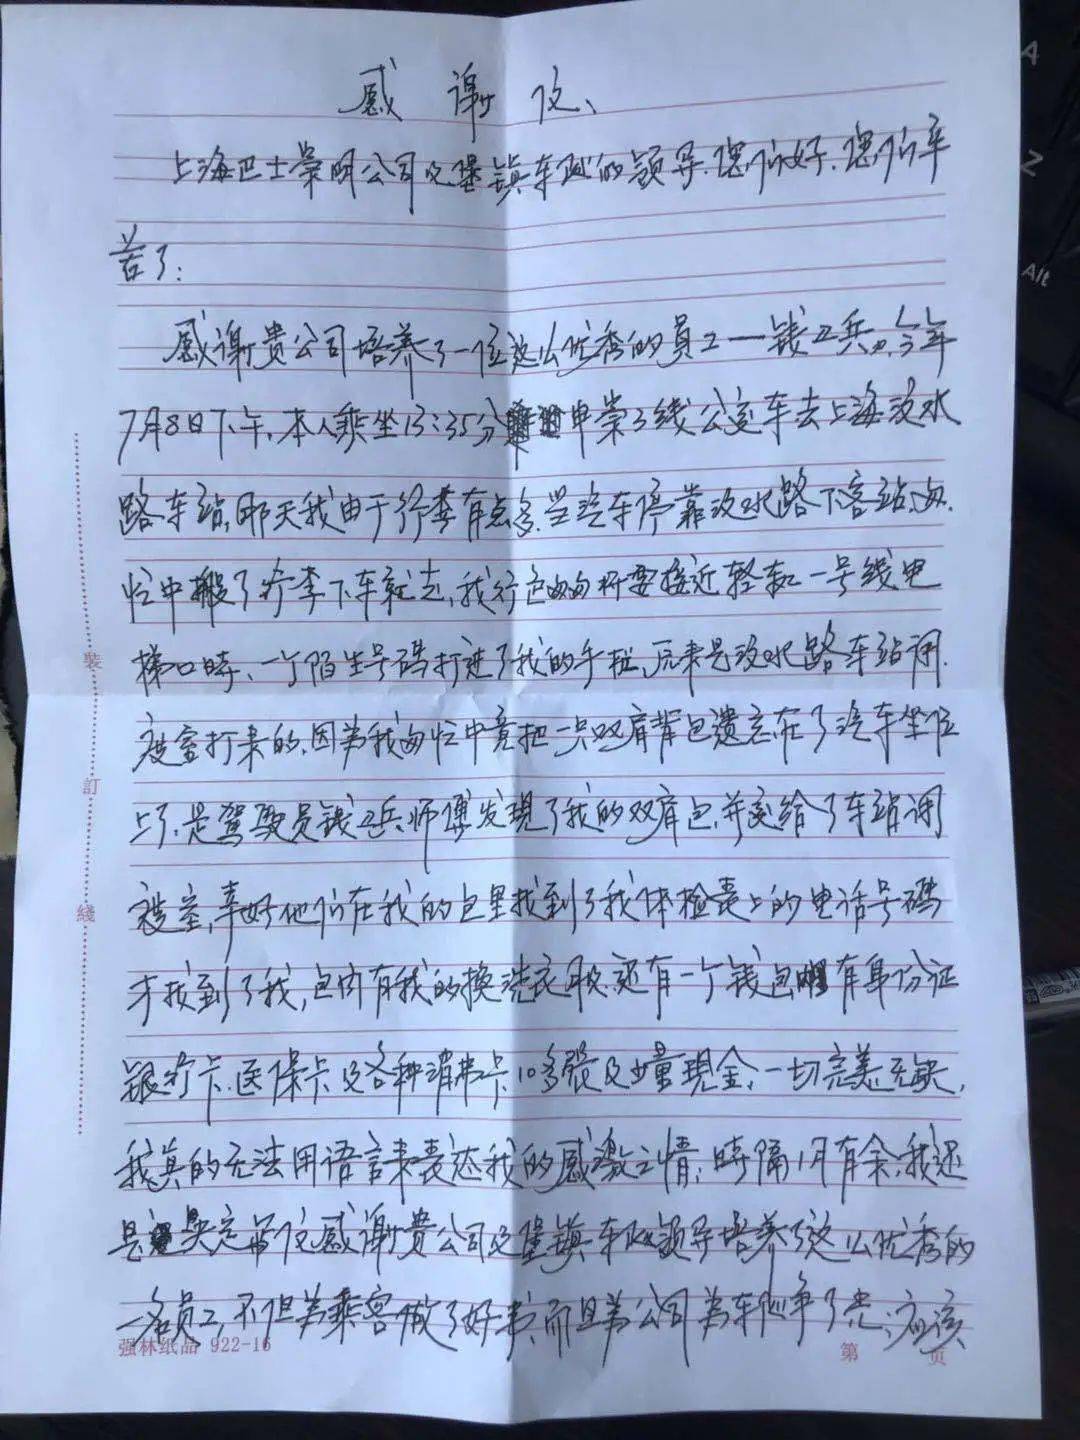 感谢信
上海巴士崇明公司及堡镇车队的领导.您们好.您们辛
苦了:
感谢贵公司培养了一位这么优秀的员工一钱卫兵.今年
7月8日下午.本人乘坐13:35分申崇3线公交车去上海汶水
路车站.那天我由于行李有点多.当汽车停靠汶水路下客站.匆.
忙中搬了行李下车就走,我行色匆匆将要接近轻轨一号线电
梯口時、一个陌生号码打进了我的手机,原来是汶水路车站调.
度室打来的.因为我匆忙中竟把一只双肩背包遗忘在了汽车坐位
上了.是駕驶员钱卫兵师傅发現了我的双肩包,并交给了车站调
度室,幸好他们在我的包里找到了我体检表上的电话号碼
才找到了我,包内有我的换洗衣服.还有一个钱包有身份证
银行卡.医保卡及各种消费卡10多張及少量現金,一切完美无缺,
我真的无法用语言来表达我的感激之情;時隔1月有余,我还
是决定带信感谢贵公司及堡镇车队领导培养了这么优秀的
一名员工,不但为乘客做了好事,而且为公司为车队争了光;应该
裝
訂
綫
强林纸品 922-16
第 页
Alt
A
Z